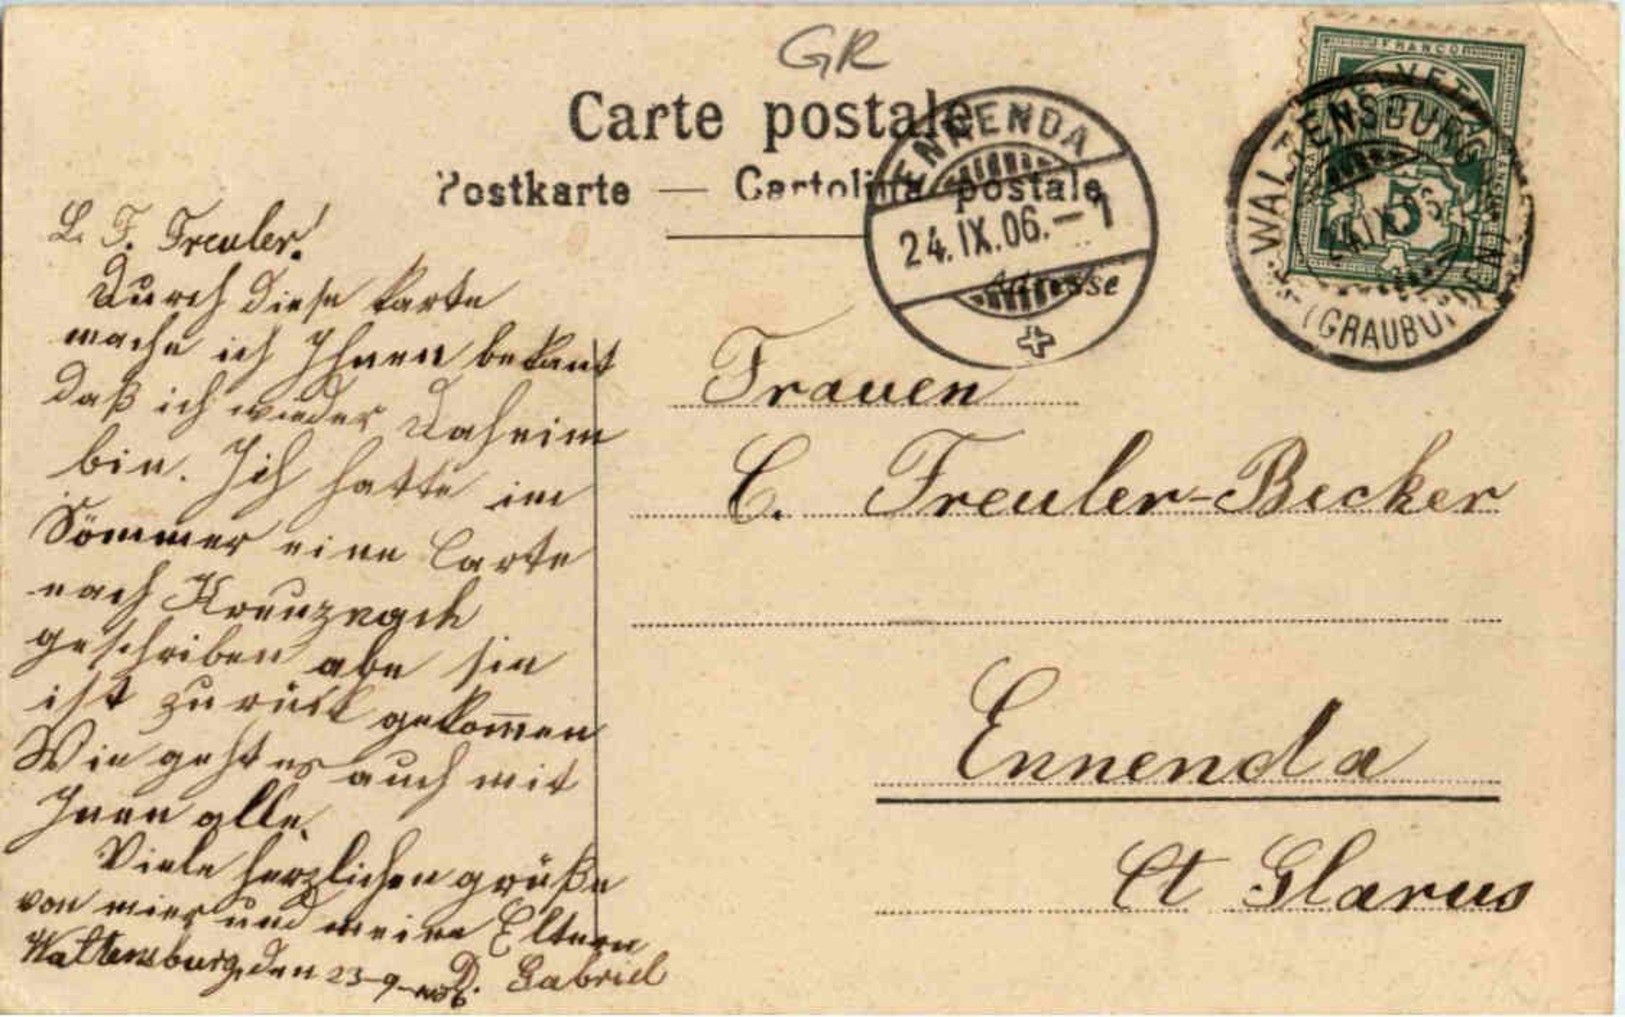 GR
Carte postale
Postkarte — Cartolina postale
Adresse
ENNENDA
24.IX.06.–1
FRANCO
HELVETIA
5
WALTENSBURG
24.IX.06
(GRAUBÜNDEN)
L. F. Freuler!
Durch diese karte
mache ich Ihnen bekant
daß ich wieder daheim
bin. Ich hatte im
Sommer eine Carte
nach Kreuznach
geschriben abe sie
ist zurück gekom̅en
Wie geht es auch mit
Inen alle.
Viele herzlichen grüße
von mier und meine Eltern
Waltensburg, den 23-9- D. Gabriel
Frauen
C. Freuler-Becker
Ennenda
Ct Glarus